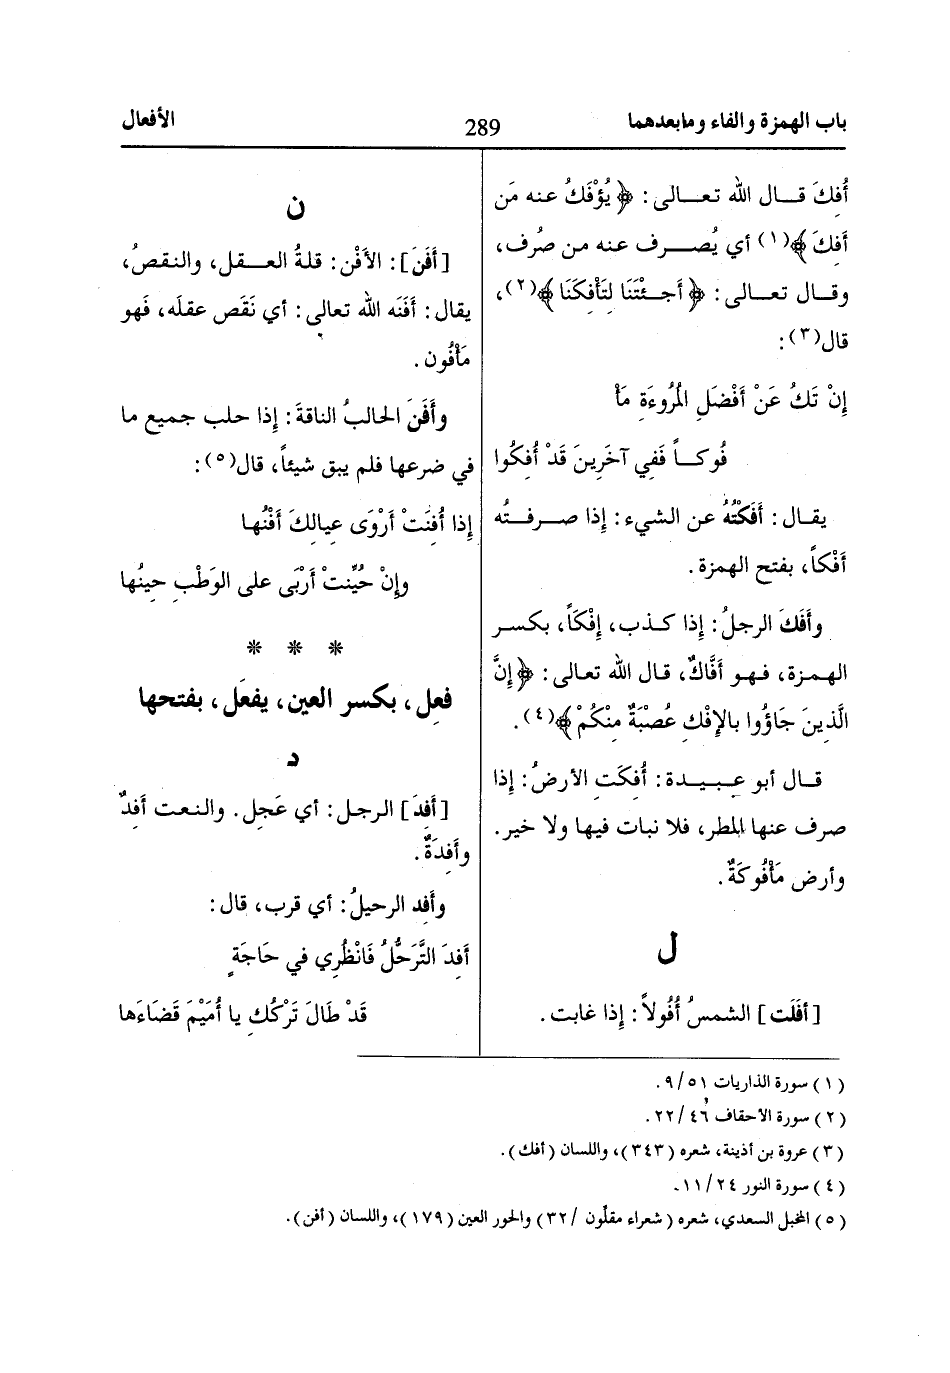 باب الهمزة والفاء وما بعدهما
289
الأفعال
أُفِكَ قال الله تعالى: ﴿يُؤْفَكُ عنه مَن
أفِكَ﴾(١) أي يُصرف عنه من صُرِف،
وقال تعالى: ﴿أجِئْتَنَا لتَأْفِكَنَا﴾(٢)،
قال(٣):
إِنْ تَكُ عَنْ أَفْضَلِ المُرُوءَةِ مَأْ
فُوكاً فَفِي آخَرِينَ قَدْ أُفِكُوا
يقال: أَفَكْتُهُ عن الشيء: إِذا صرفتُه
أَفْكاً، بفتح الهمزة.
وأَفَكَ الرجلُ: إِذا كذب، إِفْكاً، بكسر
الهمزة، فهو أَفَّاكٌ، قال الله تعالى: ﴿إِنَّ
الَّذِينَ جَاؤُوا بالإِفْكِ عُصْبَةٌ مِنْكُمْ﴾(٤).
قال أبو عبيدة: أُفِكَتِ الأرضُ: إِذا
صرف عنها المطر، فلا نبات فيها ولا خير.
وأرض مَأْفُوكَةٌ.
ل
[أفَلَت] الشمسُ أُفُولاً: إِذا غابت.
ن
[أَفَنَ]: الأَفْن: قلةُ العقل، والنقصُ،
يقال: أَفَنَه الله تعالى: أي نَقَص عقلَه، فهو
مَأْفُون.
وأَفَنَ الحالبُ الناقةَ: إِذا حلب جميع ما
في ضرعها فلم يبق شيئاً، قال(٥):
إِذا أُفِنَتْ أَرْوَى عِيالِكَ أَفْنُها
وإِنْ حُيِّنتْ أَرْبَى على الوَطْبِ حِينُها
* * *
فعِل، بكسر العين، يفعَل، بفتحها
د
[أَفِدَ] الرجل: أي عَجِل. والنعت أَفِدٌ
وأَفِدَةٌ.
وأَفِد الرحيلُ: أي قرب، قال:
أَفِدَ التَّرَحُّلُ فَانْظُرِي في حَاجَةٍ
قَدْ طَالَ تَرْكُكِ يا أُمَيْمَ قَضَاءَها
(١) سورة الذاريات ٥١/ ٩.
(٢) سورة الأحقاف ٤٦/ ٢٢.
(٣) عروة بن أذينة، شعره (٣٤٣)، واللسان (أفك).
(٤) سورة النور ٢٤/ ١١.
(٥) المخبل السعدي، شعره (شعراء مقلّون /٣٢) والحور العين (١٧٩)، واللسان (أفن).